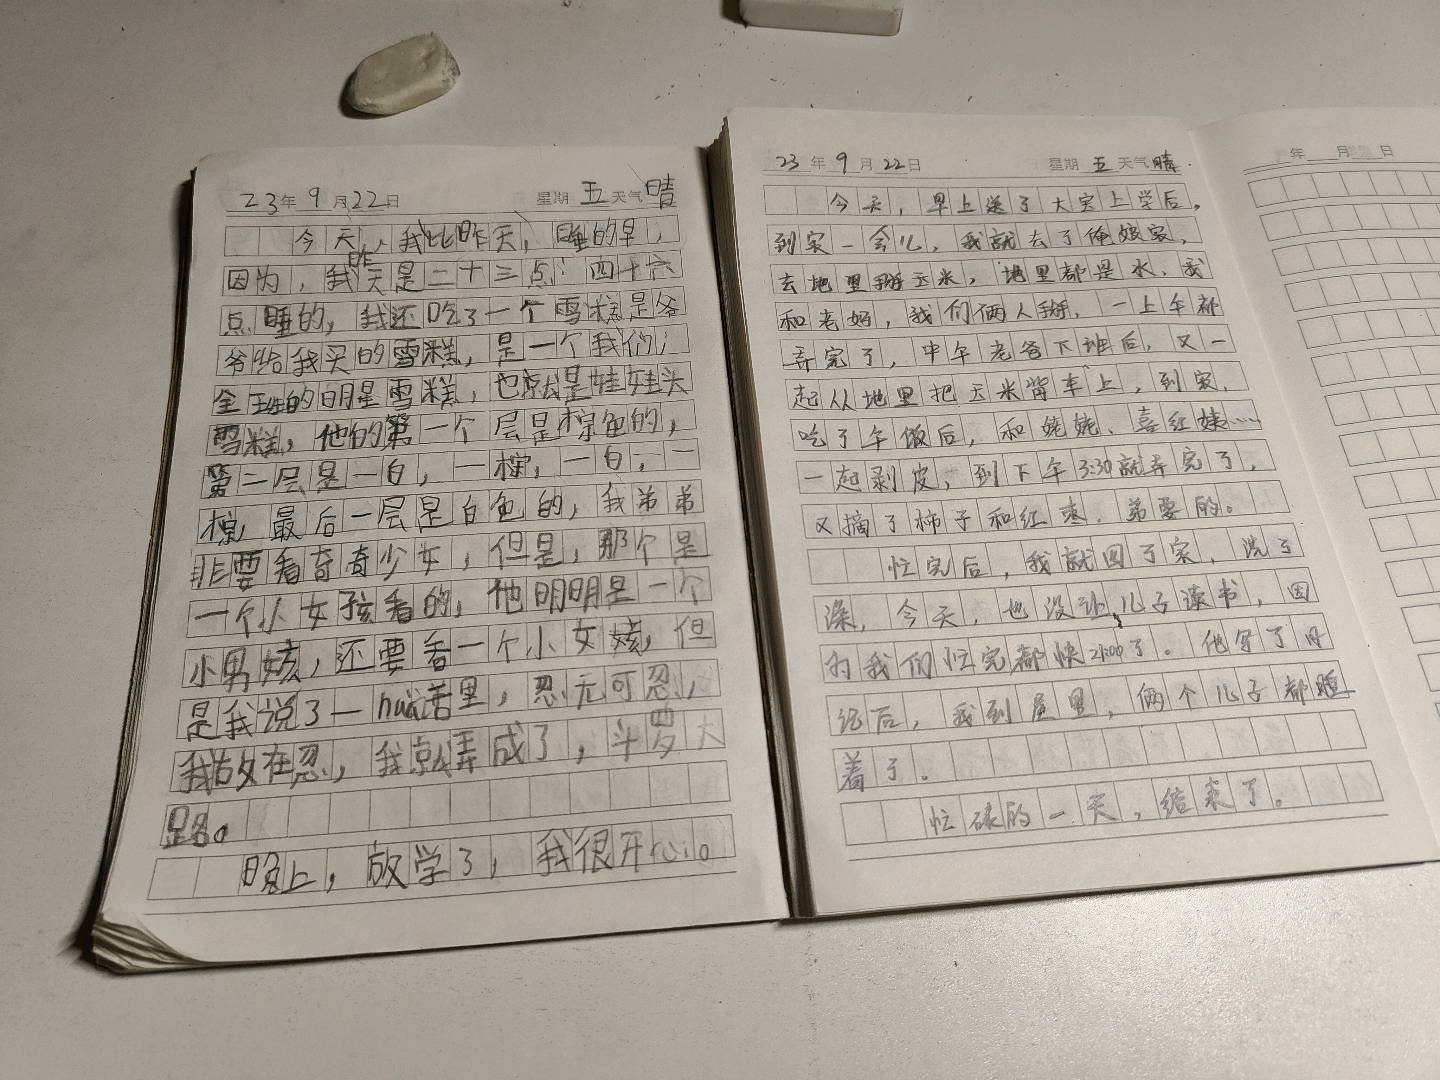 23年 9月22日 星期 五 天气 晴
今天，我比昨天，睡的早，
因为，我昨天是二十三点：四十六
点睡的，我还吃了一个雪糕是爷
爷给我买的雪糕，是一个我们，
全班的明星雪糕，也就是娃娃头
雪糕，他的第一个层是棕色的，
第二层是一白，一棕，一白，一
棕，最后一层是白色的，我弟弟
非要看奇奇少女，但是，那个是
一个小女孩看的，他明明是一个
小男孩，还要看一个小女孩，但
是我说了一hua话里，忍无可忍，
我故在忍，我就弄成了，斗罗大
路。
晚上，放学了，我很开心。
23年 9月22日 星期 五 天气 晴
今天，早上送了大宝上学后，
到家一会儿，我就去了俺娘家，
去地里掰玉米，地里都是水，我
和老妈，我们俩人掰，一上午都
弄完了，中午老爸下班后，又一
起从地里把玉米背车上，到家，
吃了午饭后，和姥姥、喜红姨……
一起剥皮，到下午3:30就弄完了，
又摘了柿子和红枣，弟要的。
忙完后，我就回了家，洗了
澡，今天，也没让儿子读书，因
为我们忙完都快21:00了。他写了日
记后，我到屋里，俩个儿子都睡
着了。
忙碌的一天，结束了。
年 月 日